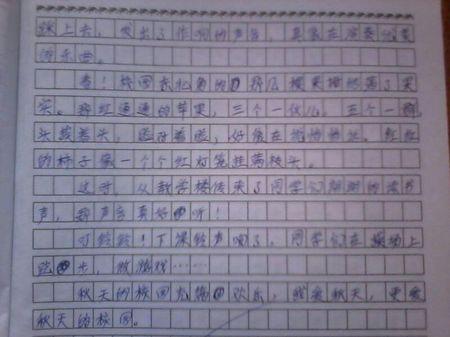 踩上去，发出了作响的声音，真象在演奏优美
的乐曲。
看！校园东北角的那几棵果树挂满了果
实。那红通通的苹果，三个一伙儿，五个一群，
头鼓着头，脸对着脸，好象在说悄悄话。红红
的柿子象一个个红灯笼挂满枝头。
这时，从教学楼传来了同学们朗朗的读书
声，那声音真好听！
叮铃铃！下课铃声响了，同学们在操场上
跑步，做游戏……
秋天的校园充满欢乐，我爱秋天，更爱
秋天的校园。